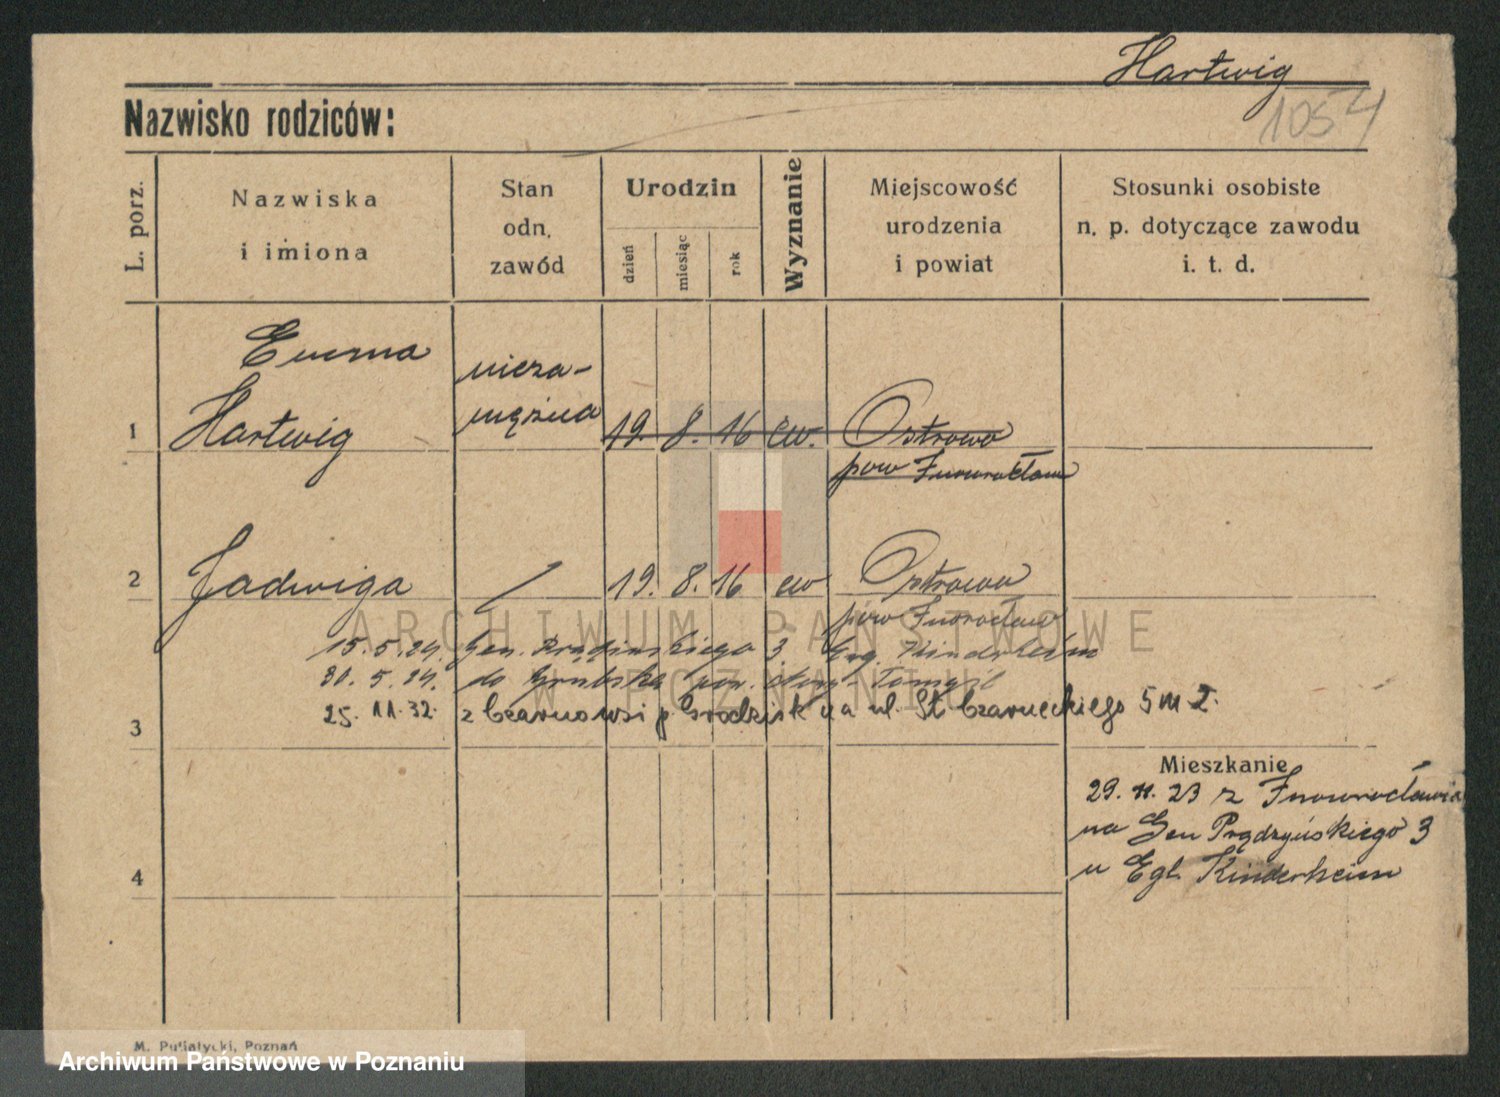 Hartwig
1054
Nazwisko rodziców:
L. porz.
Nazwiska
i imiona
Stan
odn.
zawód
Urodzin
dzień
miesiąc
rok
Wyznanie
Miejscowość
urodzenia
i powiat
Stosunki osobiste
n. p. dotyczące zawodu
i. t. d.
Emma
nieza-
mężna
1 Hartwig 19. 8. 16 ew. Ostrowo
pow Inowrocław
2 Jadwiga 19. 8. 16 ew Ostrowo
pow Inowrocław
ARCHIWUM PAŃSTWOWE
W POZNANIU
15.5.24. Gen. Prądzińskiego 3. Kinderheim
30.5.24. do pow. Tomyśl
25.11.32. z Czarnowsi p. Grodzisk na ul. St Czarneckiego 5 m 2.
3
Mieszkanie
29.11.23 z Inowrocławia
na Gen Prądzyńskiego 3
u Egl. Kinderheim
4
M. Putiatycki, Poznań
Archiwum Państwowe w Poznaniu